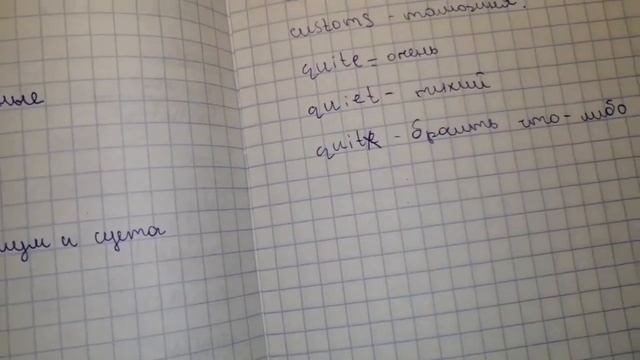 ные
шум и суета
customs - таможня.
quite = очень
quiet - тихий
quit - бросить что-либо